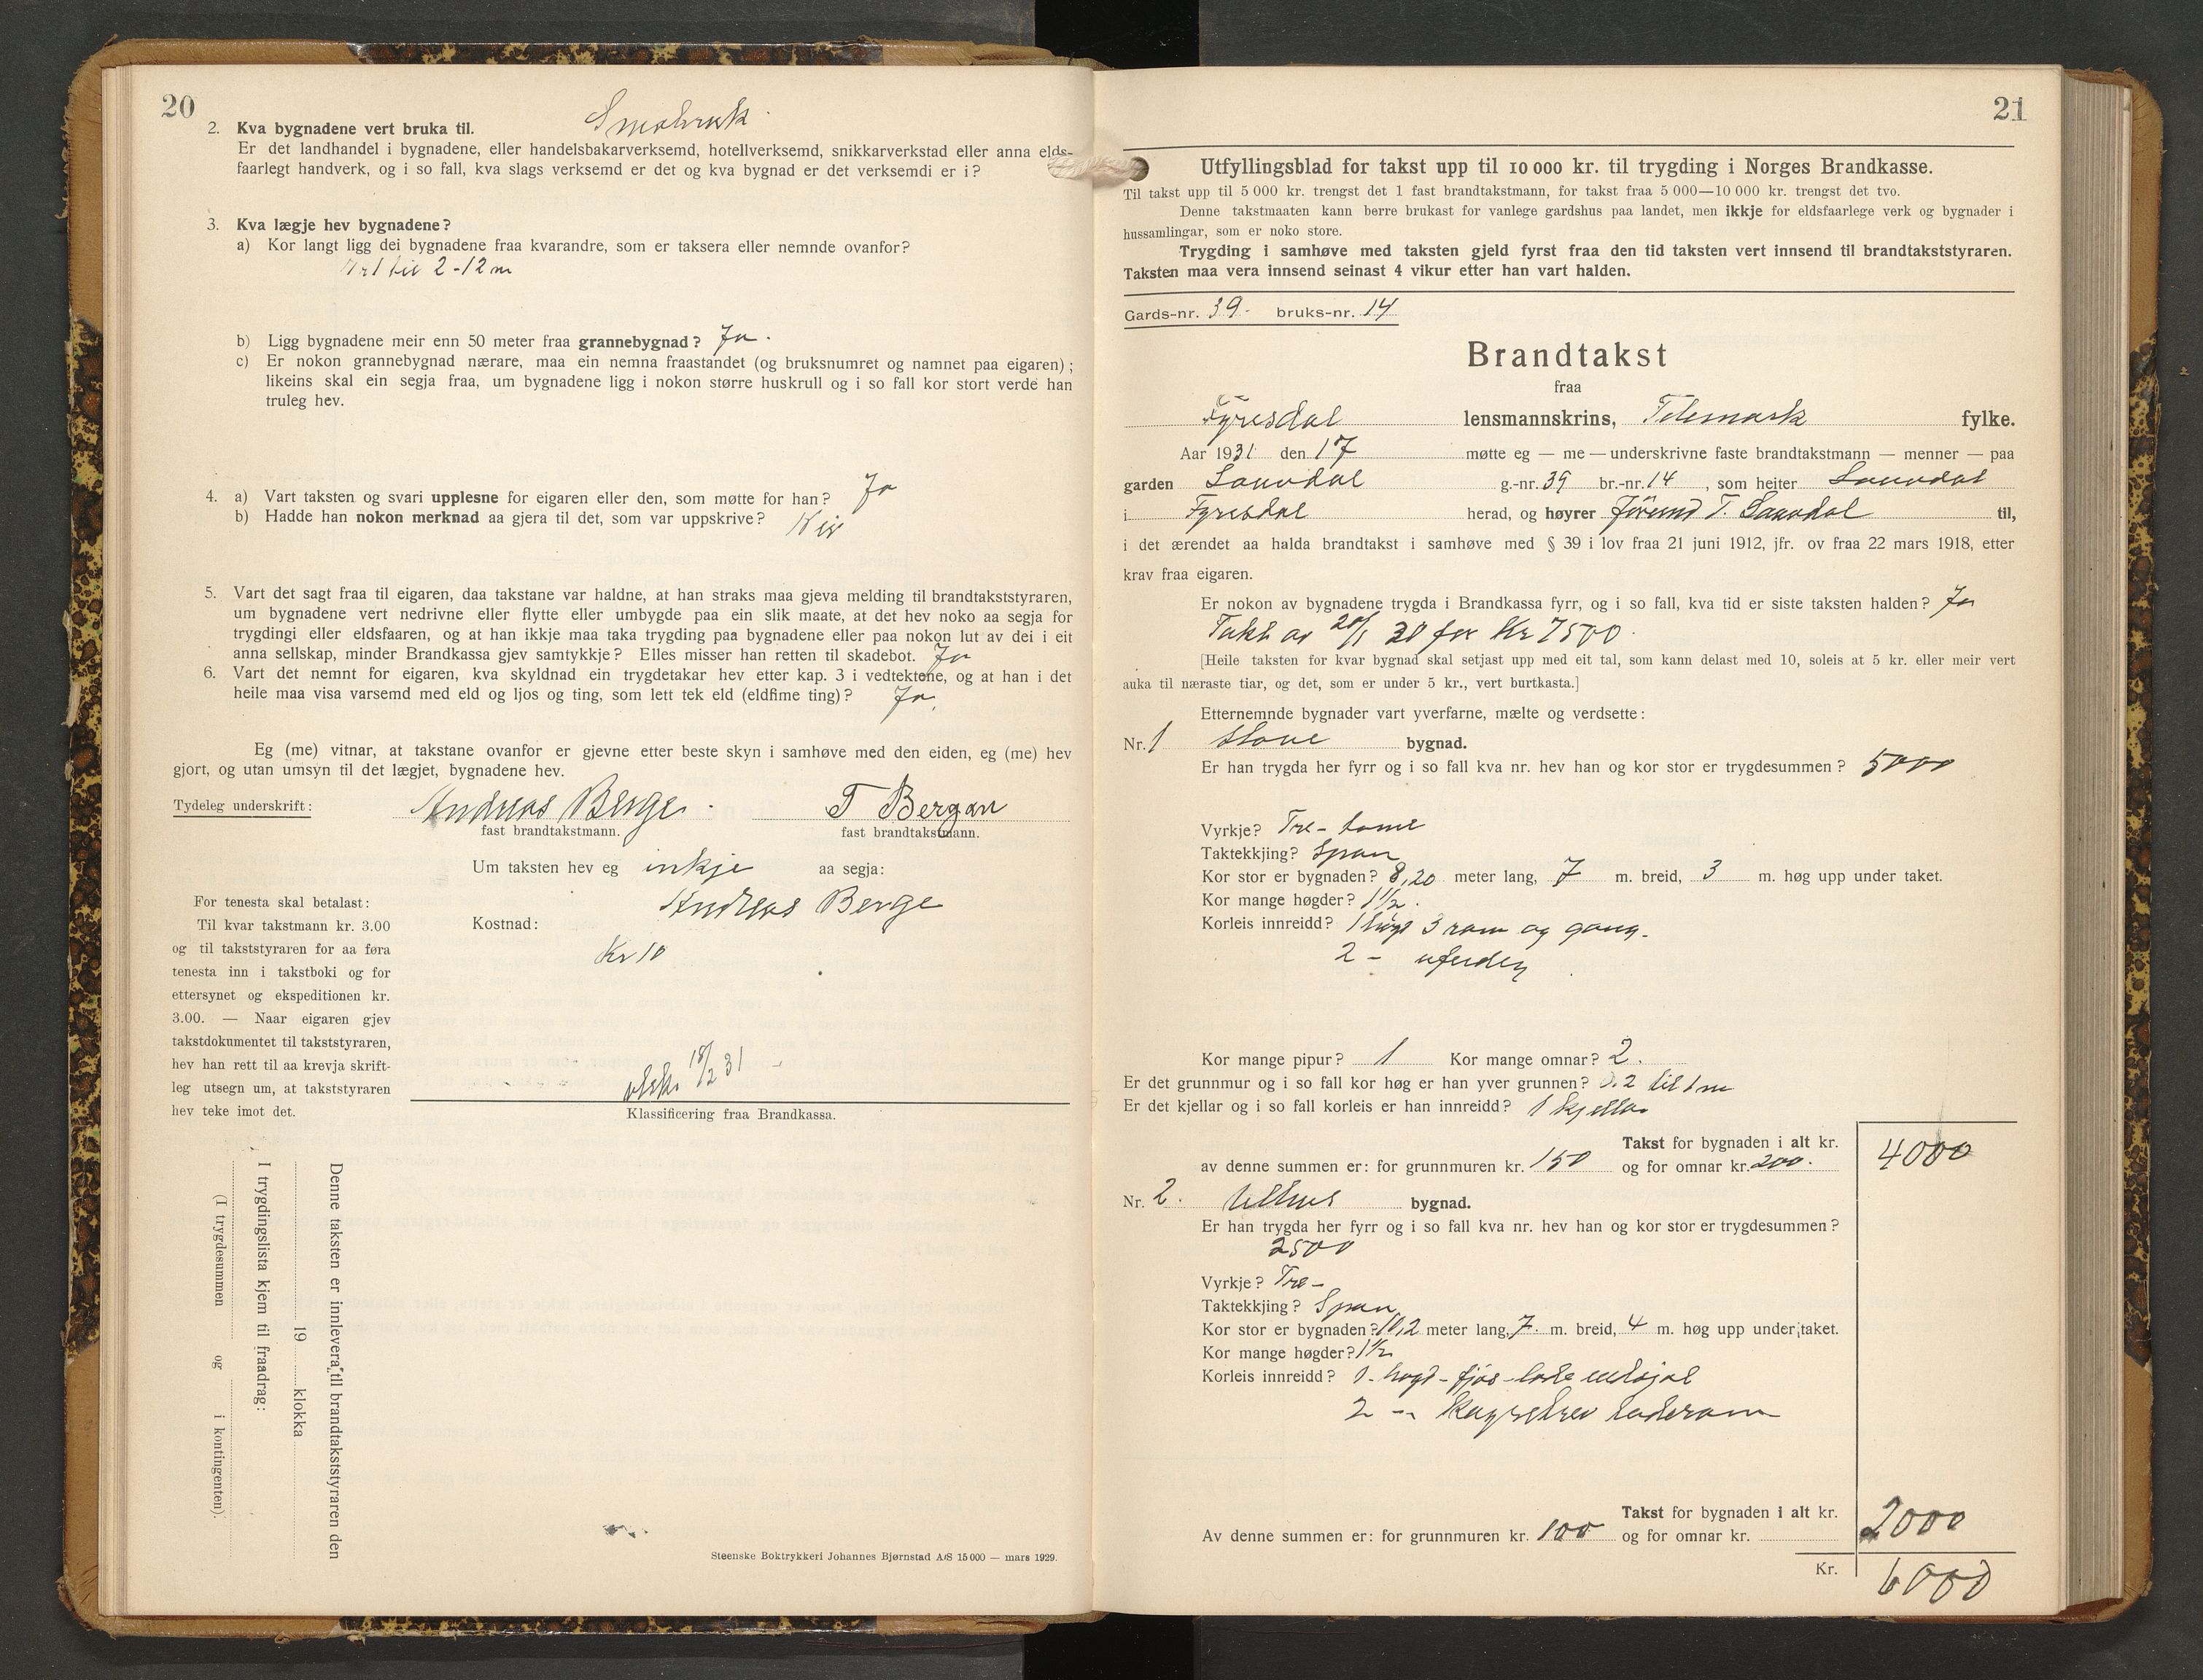 20
2. Kva bygnadene vert bruka til. Smobruk
Er det landhandel i bygnadene, eller handelsbakarverksemd, hotellverksemd, snikkarverkstad eller anna elds-
faarlegt handverk, og i so fall, kva slags verksemd er det og kva bygnad er det verksemdi er i?
3. Kva lægje hev bygnadene?
a) Kor langt ligg dei bygnadene fraa kvarandre, som er taksera eller nemnde ovanfor?
til 2-12 m
b) Ligg bygnadene meir enn 50 meter fraa grannebygnad? Ja.
c) Er nokon grannebygnad nærare, maa ein nemna fraastandet (og bruksnumret og namnet paa eigaren);
likeins skal ein segja fraa, um bygnadene ligg i nokon større huskrull og i so fall kor stort verde han
truleg hev.
4. a) Vart taksten og svari upplesne for eigaren eller den, som møtte for han? Ja
b) Hadde han nokon merknad aa gjera til det, som var uppskrive? Nei
5. Vart det sagt fraa til eigaren, daa takstane var haldne, at han straks maa gjeva melding til brandtakststyraren,
um bygnadene vert nedrivne eller flytte eller umbygde paa ein slik maate, at det hev noko aa segja for
trygdingi eller eldsfaaren, og at han ikkje maa taka trygding paa bygnadene eller paa nokon lut av dei i eit
anna sellskap, minder Brandkassa gjev samtykkje? Elles misser han retten til skadebot. Ja
6. Vart det nemnt for eigaren, kva skyldnad ein trygdetakar hev etter kap. 3 i vedtektene, og at han i det
heile maa visa varsemd med eld og ljos og ting, som lett tek eld (eldfime ting)? Ja.
Eg (me) vitnar, at takstane ovanfor er gjevne etter beste skyn i samhøve med den eiden, eg (me) hev
gjort, og utan umsyn til det lægjet, bygnadene hev.
Tydeleg underskrift: Andreas Berge. T Bergan
fast brandtakstmann. fast brandtakstmann.
Um taksten hev eg inkje aa segja:
Andreas Berge
Kostnad:
Kr 10
For tenesta skal betalast:
Til kvar takstmann kr. 3.00
og til takststyraren for aa føra
tenesta inn i takstboki og for
ettersynet og ekspeditionen kr.
3.00. — Naar eigaren gjev
takstdokumentet til takststyraren,
hev han rett til aa krevja skrift-
leg utsegn um, at takststyraren
hev teke imot det.
18/2 31
Klassificering fraa Brandkassa.
Denne taksten er innlevera til brandtakststyraren den
19 klokka
I trygdingslista kjem til fraadrag:
(I trygdesummen og i kontingenten).
Steenske Boktrykkeri Johannes Bjørnstad A/S 15 000 — mars 1929.
21
Utfyllingsblad for takst upp til 10 000 kr. til trygding i Norges Brandkasse.
Til takst upp til 5 000 kr. trengst det 1 fast brandtakstmann, for takst fraa 5 000—10 000 kr. trengst det tvo.
Denne takstmaaten kann berre brukast for vanlege gardshus paa landet, men ikkje for eldsfaarlege verk og bygnader i
hussamlingar, som er noko store.
Trygding i samhøve med taksten gjeld fyrst fraa den tid taksten vert innsend til brandtakststyraren.
Taksten maa vera innsend seinast 4 vikur etter han vart halden.
Gards-nr. 39. bruks-nr. 14
Brandtakst
fraa
Fyresdal lensmannskrins, Telemark fylke.
Aar 1931 den 17 møtte eg — me — underskrivne faste brandtakstmann — menner — paa
garden Sauvdal g.-nr. 39 br.-nr. 14 , som heiter Sauvdal
i Fyresdal herad, og høyrer Jörund T. Sauvdal til,
i det ærendet aa halda brandtakst i samhøve med § 39 i lov fraa 21 juni 1912, jfr. ov fraa 22 mars 1918, etter
krav fraa eigaren.
Er nokon av bygnadene trygda i Brandkassa fyrr, og i so fall, kva tid er siste taksten halden? Ja
Takst av 20/1 30 for Kr 7500.
[Heile taksten for kvar bygnad skal setjast upp med eit tal, som kann delast med 10, soleis at 5 kr. eller meir vert
auka til næraste tiar, og det, som er under 5 kr., vert burtkasta.]
Etternemnde bygnader vart yverfarne, mælte og verdsette:
Nr. 1 Stove bygnad.
Er han trygda her fyrr og i so fall kva nr. hev han og kor stor er trygdesummen? 5000
Vyrkje? Tre -
Taktekkjing? Span
Kor stor er bygnaden? 8,20 meter lang, 7 m. breid, 3 m. høg upp under taket.
Kor mange høgder? 1 1/2.
Korleis innreidd? 1 høgd 3 rom og gang.
2 - uferdig
Kor mange pipur? 1 Kor mange omnar? 2.
Er det grunnmur og i so fall kor høg er han yver grunnen? 0.2 til 1 m
Er det kjellar og i so fall korleis er han innreidd? 1 kjellar
Takst for bygnaden i alt kr. 4000
av denne summen er: for grunnmuren kr. 150 og for omnar kr. 200.
Nr. 2. Uthus bygnad.
Er han trygda her fyrr og i so fall kva nr. hev han og kor stor er trygdesummen?
2500
Vyrkje? Tre -
Taktekkjing? Span
Kor stor er bygnaden? 10,2 meter lang, 7. m. breid, 4 m. høg upp under taket.
Kor mange høgder? 1 1/2
Korleis innreidd? 1 - høgd - fjøs - lade
2 -
Takst for bygnaden i alt kr. 2000
Av denne summen er: for grunnmuren kr. 100 og for omnar kr.
Kr. 6000